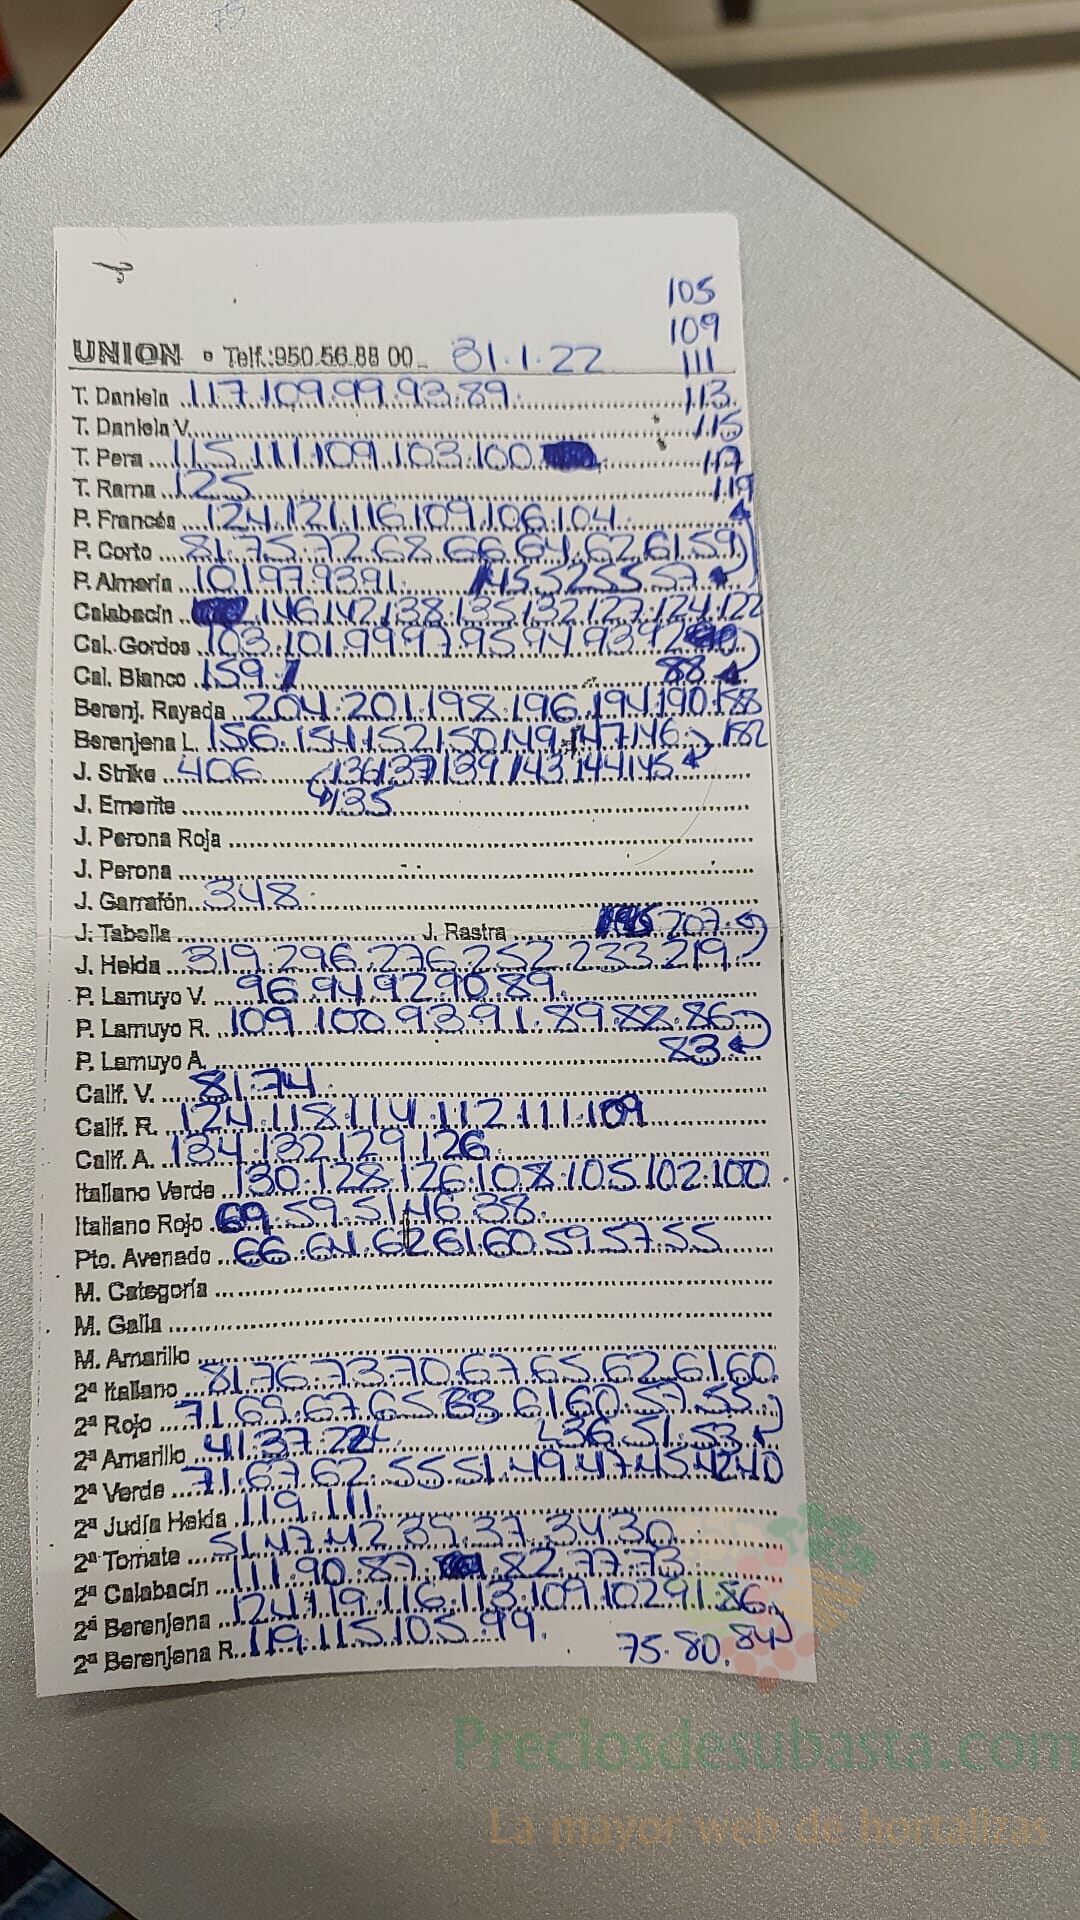 105
109
UNION • Telf.:950.56.88 00 31.1.22 111
T. Daniela 117.109.99.93.89. 113
T. Daniela V. 115
T. Pera 115.111.109.103.100 117
T. Rama 125 119
P. Francés 124.121.116.109.106.104
P. Corto 81.75.72.68.66.64.62.61.59
P. Almería 101.97.93.91. 45.52.55.57
Calabacín 146.142.138.135.132.127.124.122
Cal. Gordos 103.101.99.97.95.94.93.92.90
Cal. Blanco 159 88
Berenj. Rayada 204.201.198.196.194.190.188
Berenjena L. 156.154.152.150.149.147.146 182
J. Strike 406 136.137.139.143.144.145
J. Emerite 135
J. Perona Roja
J. Perona
J. Garrafón 348
J. Tabella J. Rastra 207
J. Helda 319.296.276.252.233.219
P. Lamuyo V. 96.94.92.90.89.
P. Lamuyo R. 109.100.93.91.89.88.86
P. Lamuyo A. 83
Calif. V. 81.74
Calif. R. 124.118.114.112.111.109
Calif. A. 134.132.129.126
Italiano Verde 130.128.126.108.105.102.100
Italiano Rojo 69.59.51.46.38.
Pto. Avenado 66.64.62.61.60.59.57.55
M. Categoría
M. Galia
M. Amarillo
2ª Italiano 81.76.73.70.67.65.62.61.60
2ª Rojo 71.69.67.65.63.61.60.57.55
2ª Amarillo 41.37. 36.51.53
2ª Verde 71.67.62.55.51.49.47.45.42.40
2ª Judía Helda 119.111.
2ª Tomate 51.47.42.39.37.34.30
2ª Calabacín 111.90.87. 82.77.73
2ª Berenjena 124.119.116.113.109.102.91.86
2ª Berenjena R. 119.115.105.99. 75.80.84
Preciosdesubasta.com
La mayor web de hortalizas